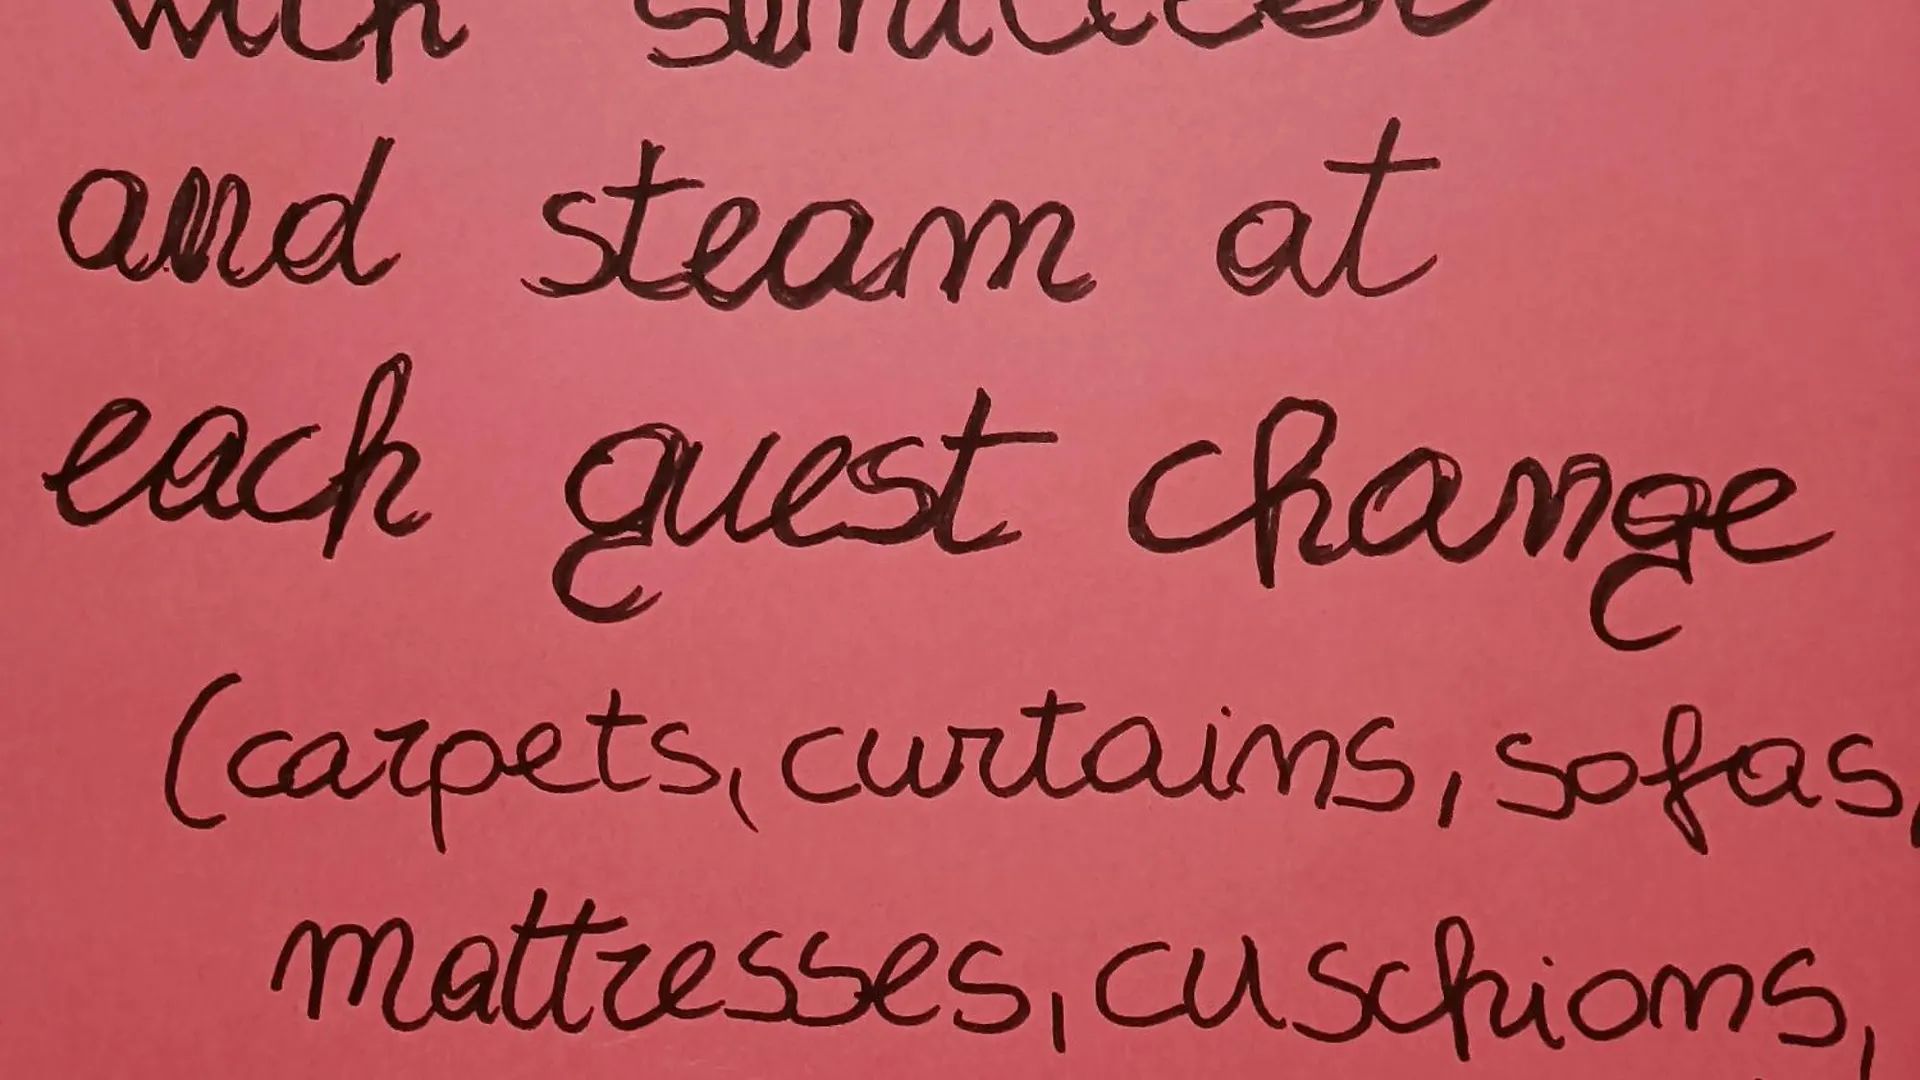 with
and steam at
each guest change
(carpets, curtains, sofas,
mattresses, cuschions,